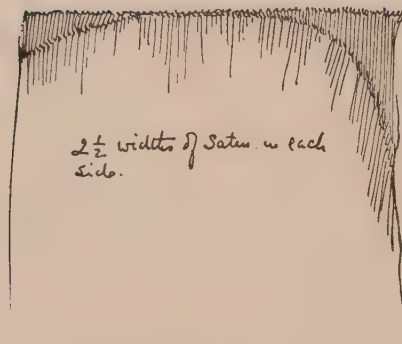 2½ widths of Saten in each
side.